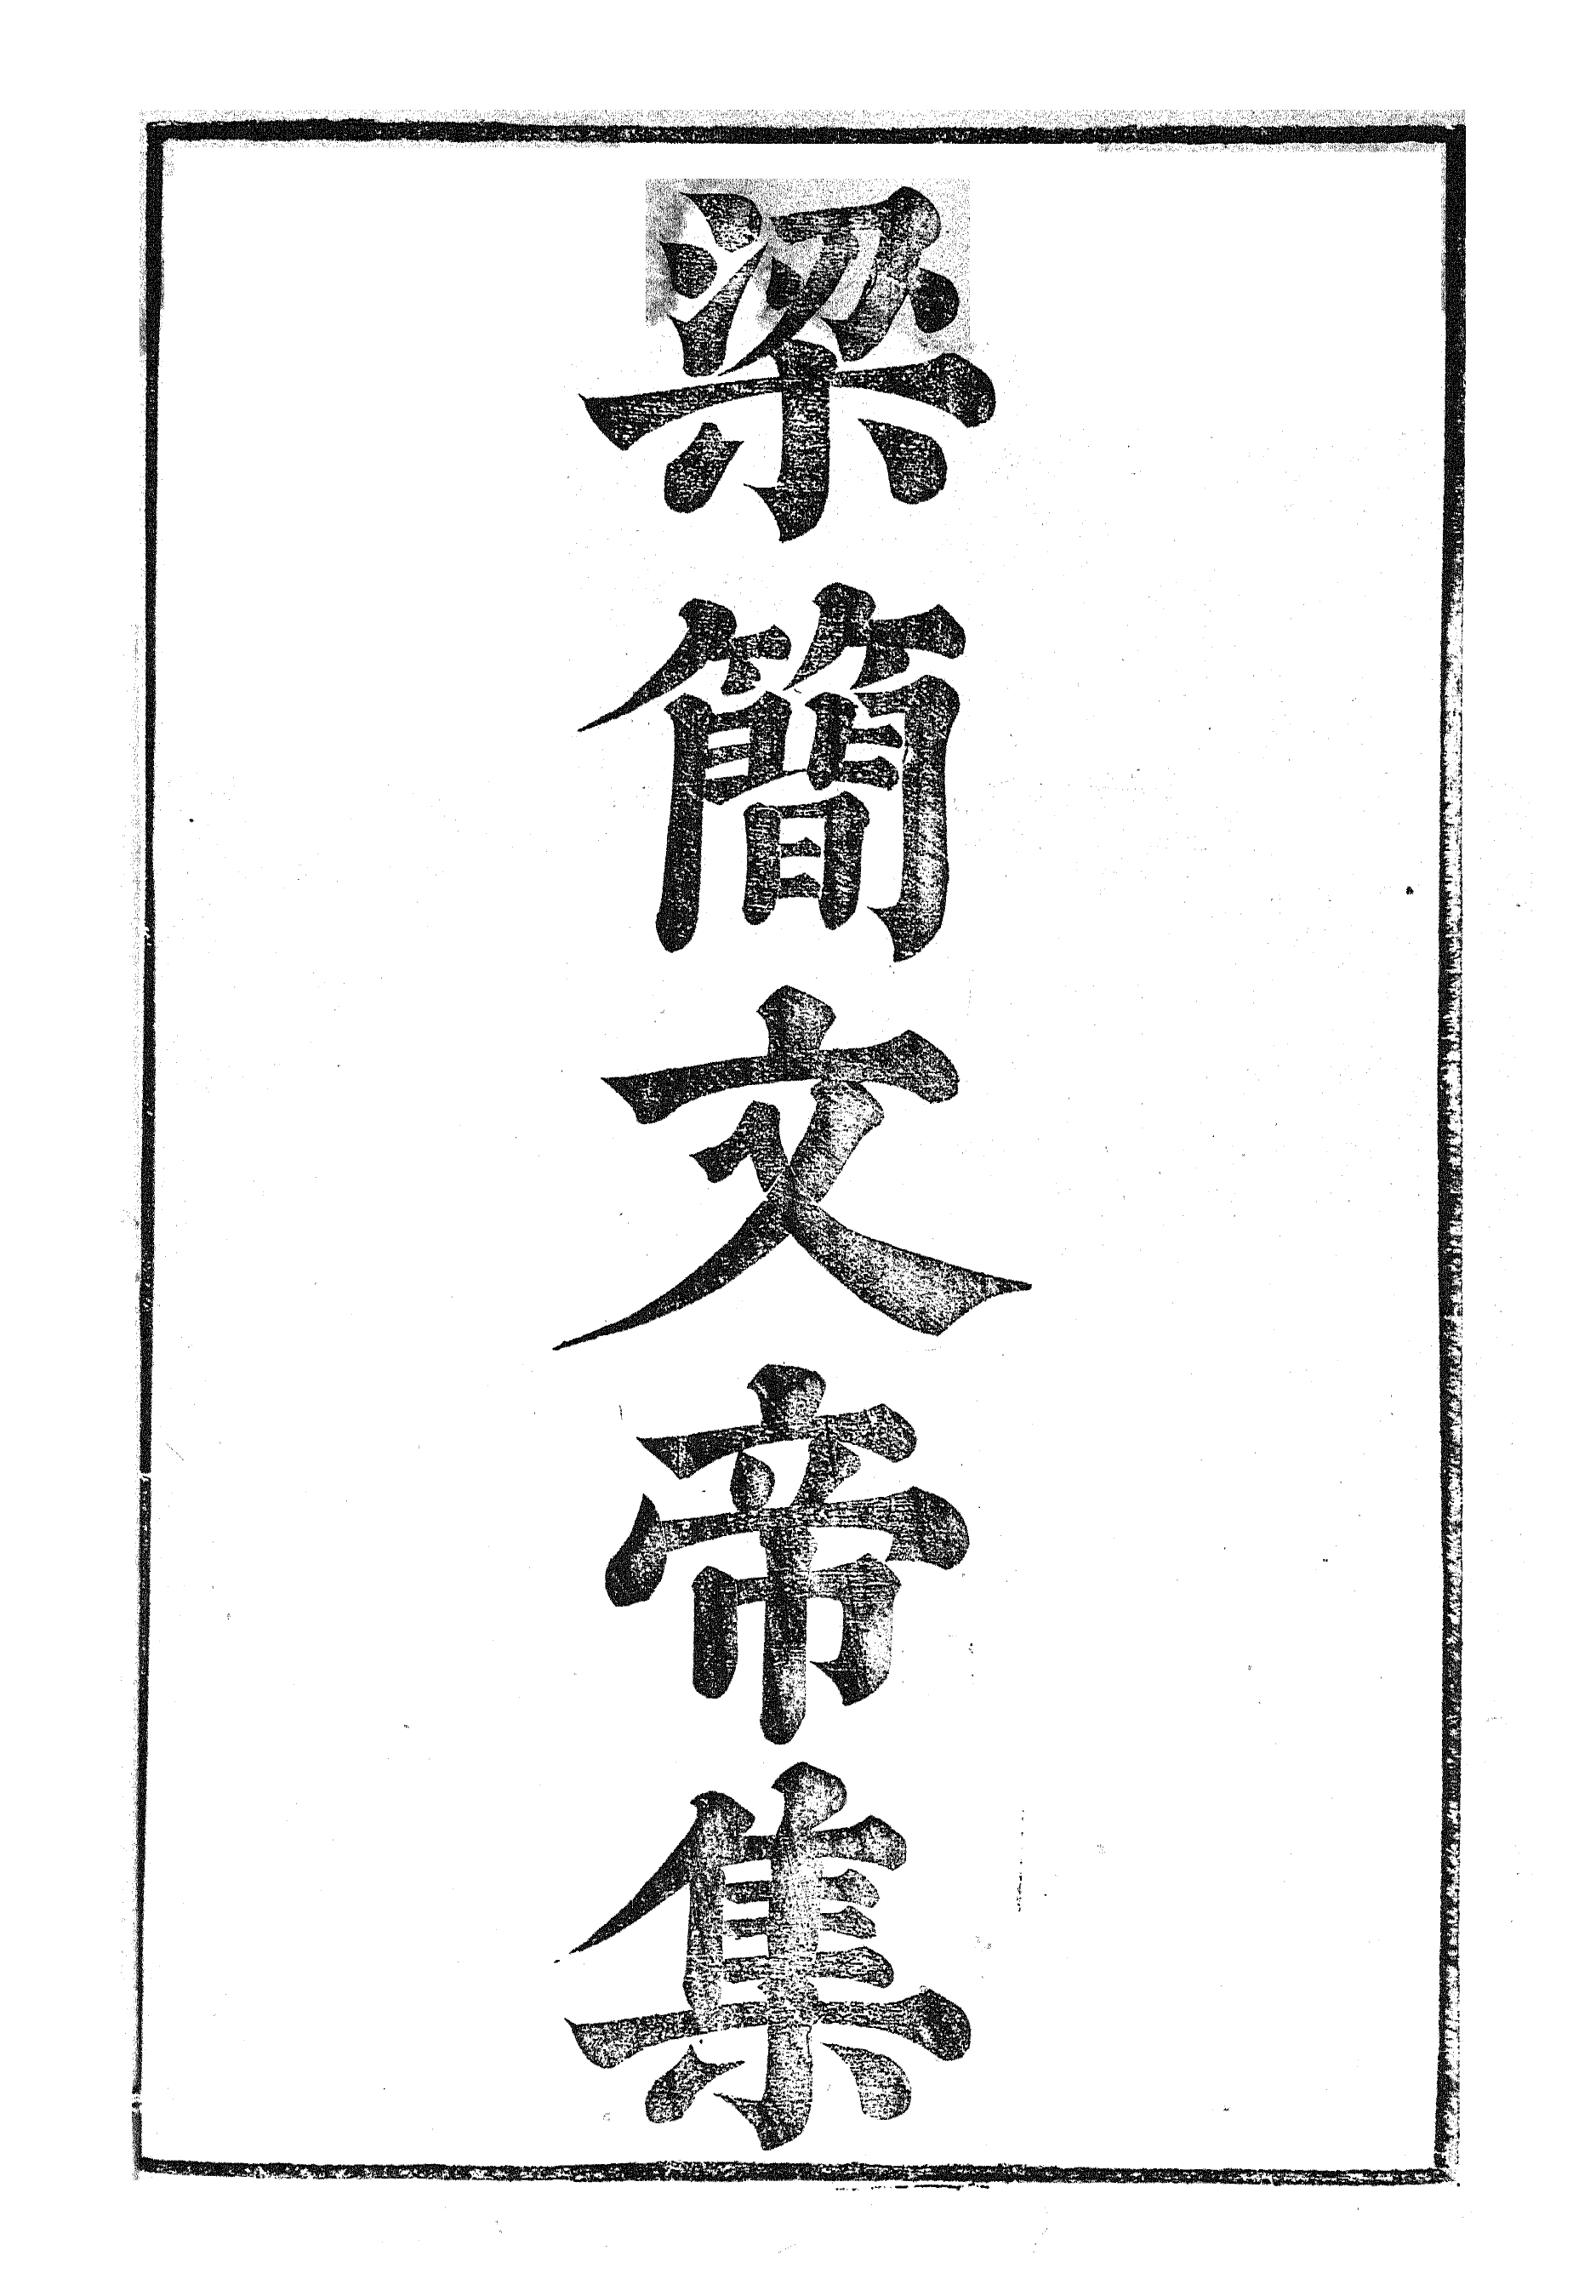 梁簡文帝集